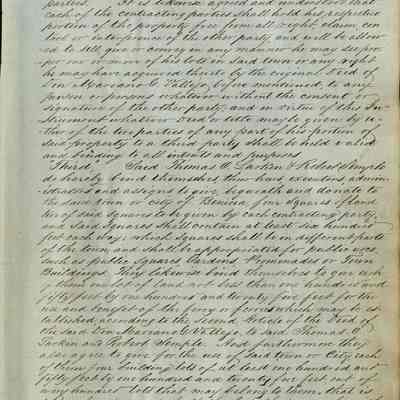 parties. It is likewise agreed and understood that
each of the contracting parties shall hold his respective
portion of the property free from all right, claim, con
trol or interference of the other party, and will be allow
ed to sell, give or convey in any manner he may see pro-
per one or more of his lots in said town or any right
he may have acquired thereto by the original Deed of
Don Mariano G Vallejo, by
party or persons whatever without the consent or
signature of the other party, and in virtue of this In-
strument whatever Deed or title may be given by ei-
ther of the two parties of any part of his portion of
said property to a third party shall be held valid
and binding to all intents and purposes.
Third. Said Thomas O. Larkin & Robert Semple
do hereby bind themselves their heirs executors admin-
istrators and assigns to give, bequeath and donate to
the said town or city of Benicia, four squares of land
two of said squares to be given by each contracting party,
and said squares shall contain at least six hundred
feet each way; which squares shall be in different parts
of the town, and shall be appropriated for public uses
such as public Squares Gardens Promenades or Town
Buildings. They likewise bind themselves to give each
of them one lot of land not less than one hundred and
fifty feet by one hundred and twenty five feet for the
use and benefit of the ferry or ferries which may be es-
tablished according to the Second Article of the Deed of
the said Don Mariano G Vallejo, to said Thomas O
Larkin and Robert Semple. And furthermore they
also agree to give for the use of said town or City each
of them four building lots of at least one hundred and
fifty feet by one hundred and twenty five feet out of
any hundred lots that may belong to them, that is